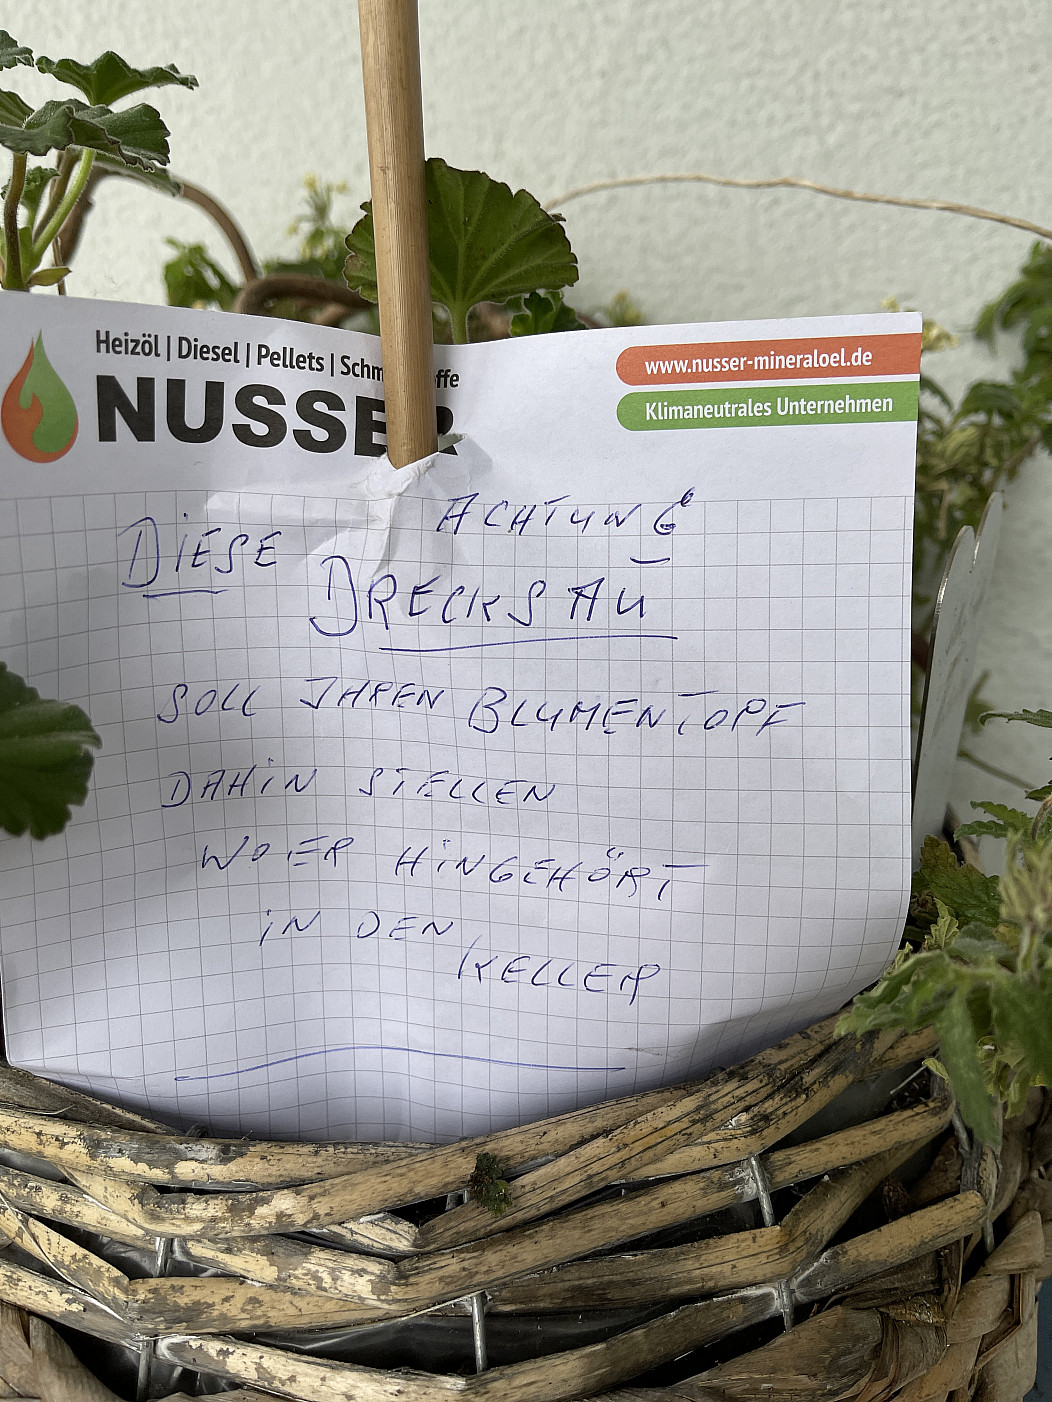 Heizöl | Diesel | Pellets | Schm ffe
NUSSER
www.nusser-mineraloel.de
Klimaneutrales Unternehmen
ACHTUNG
DIESE
DRECKSAU
SOLL IHREN BLUMENTOPF
DAHIN STELLEN
WO ER HINGEHÖRT
IN DEN
KELLER